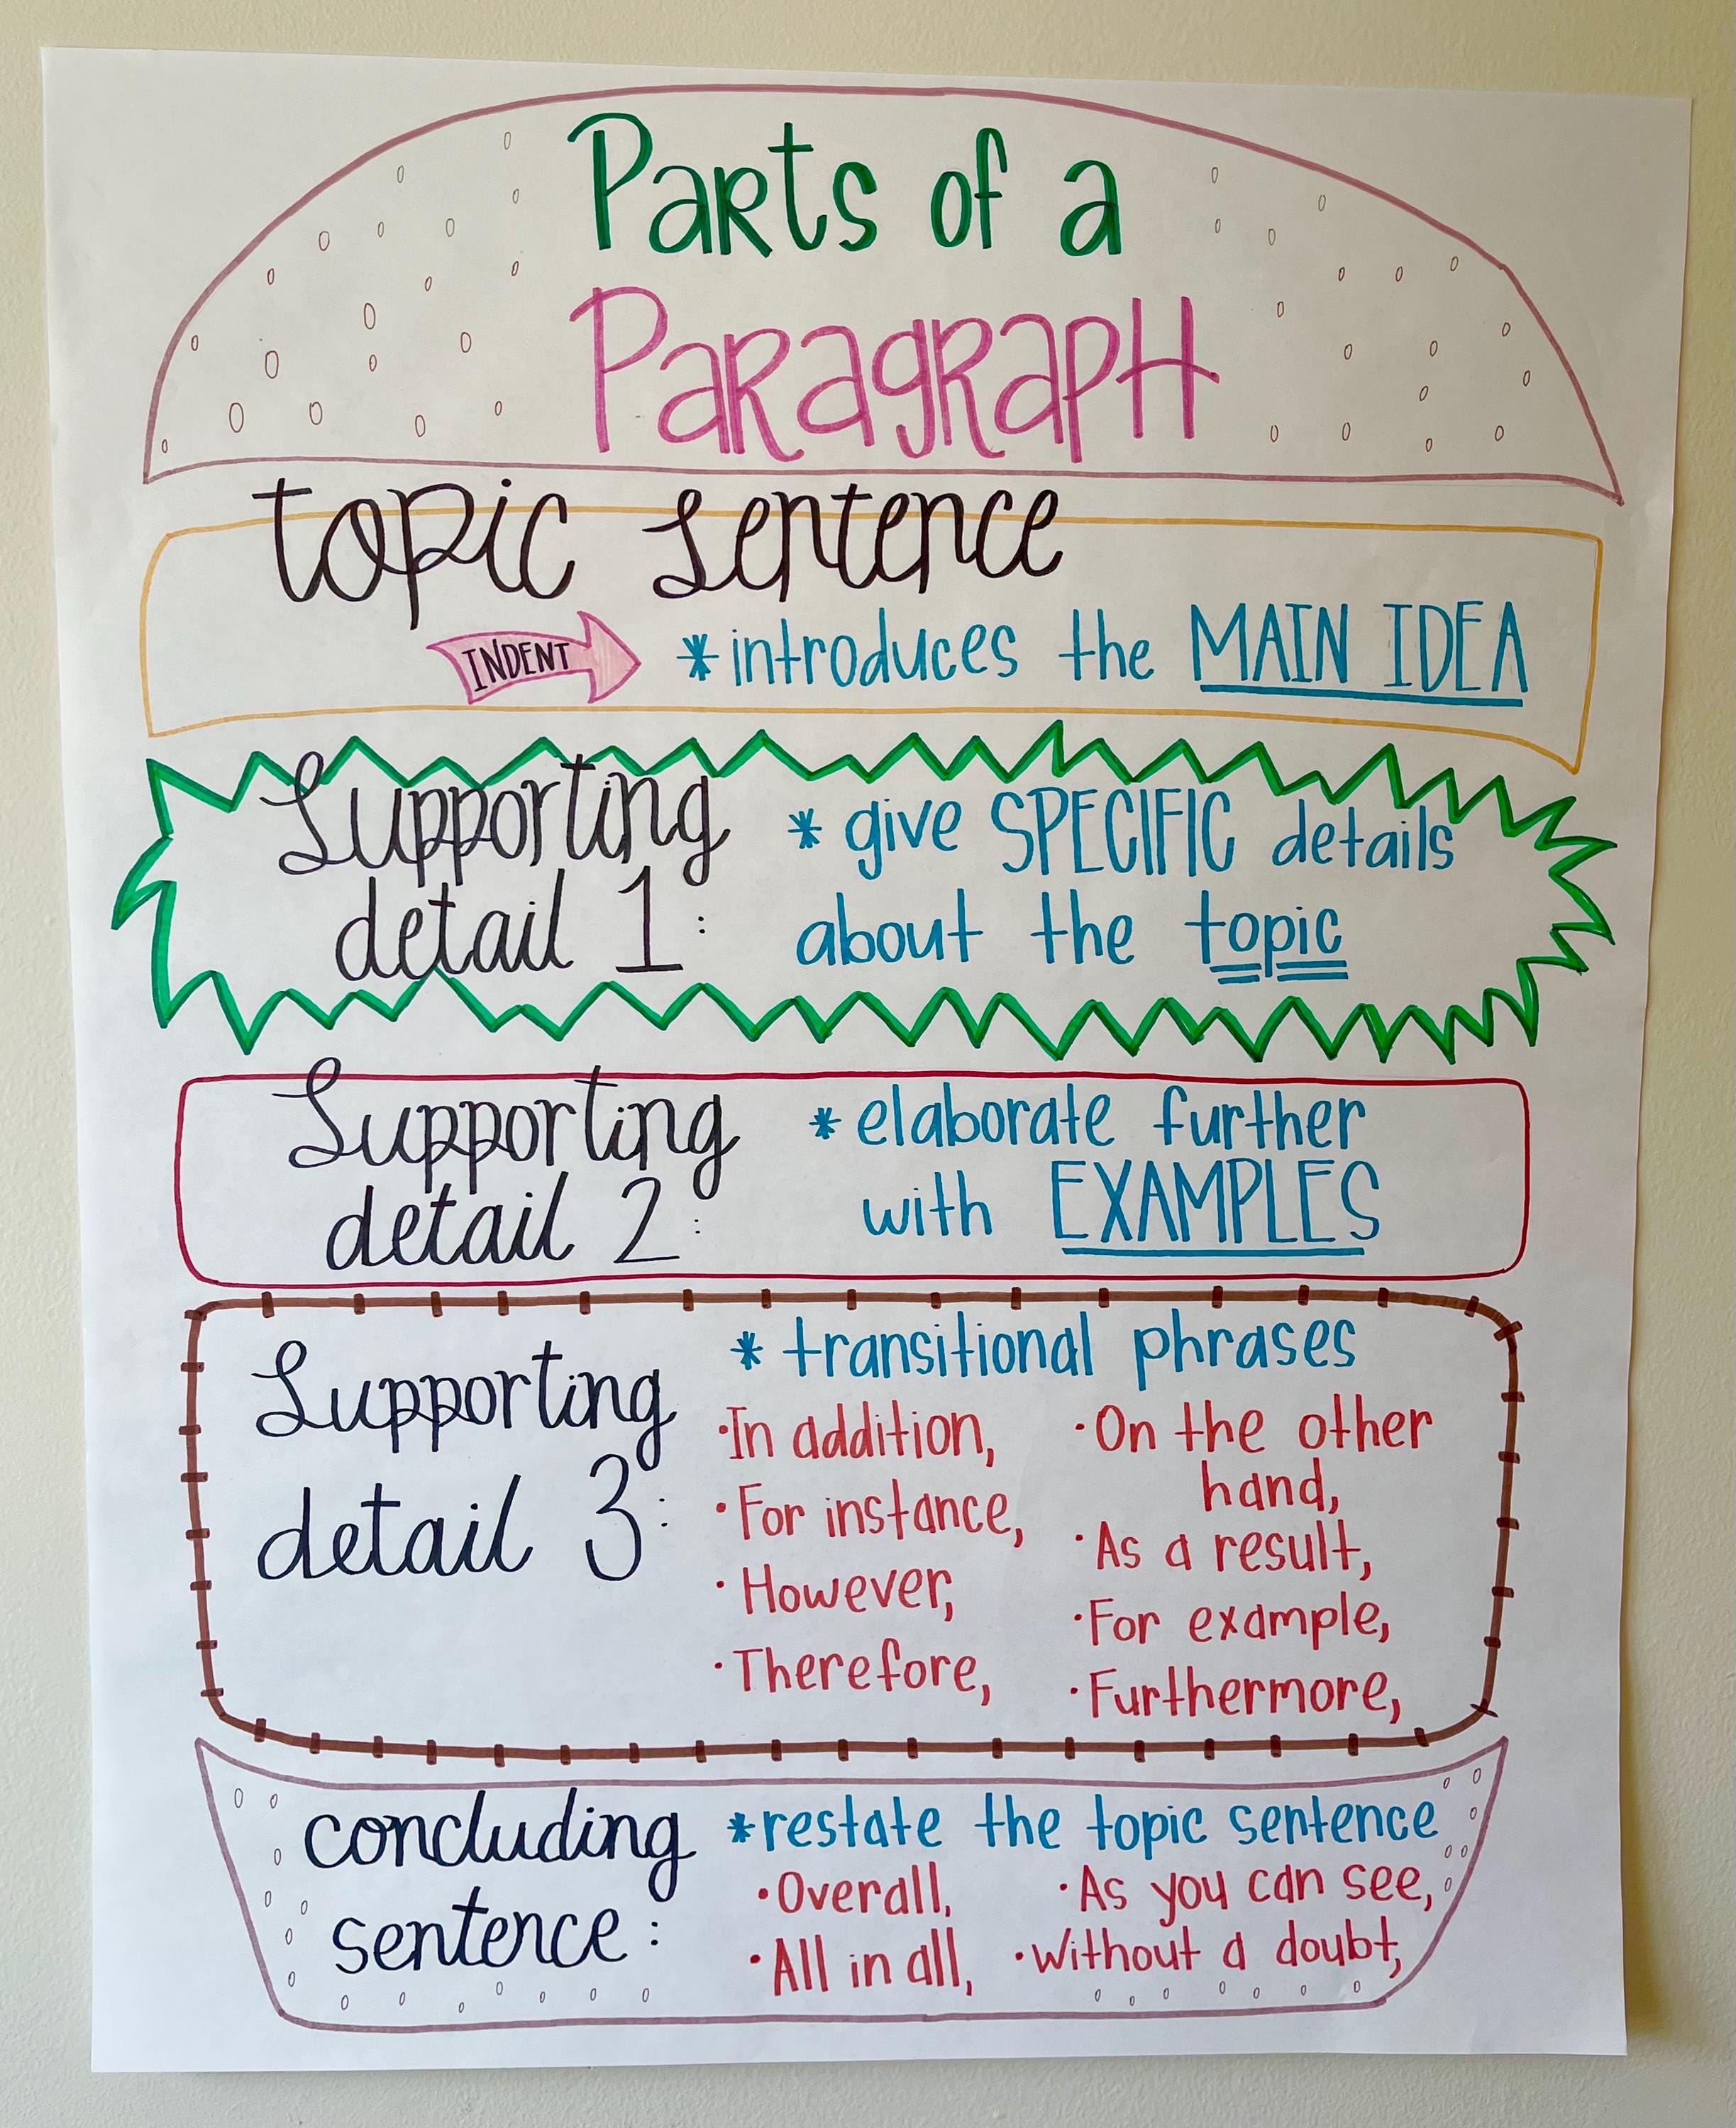 Parts of a
Paragraph
topic sentence
INDENT
* introduces the MAIN IDEA
Supporting
detail 1:
* give SPECIFIC details
about the topic
Supporting
detail 2:
* elaborate further
with EXAMPLES
Supporting
detail 3:
* transitional phrases
· In addition,
· For instance,
· However,
· Therefore,
· On the other
hand,
· As a result,
· For example,
· Furthermore,
concluding
sentence:
* restate the topic sentence
· Overall,
· All in all,
· As you can see,
· Without a doubt,